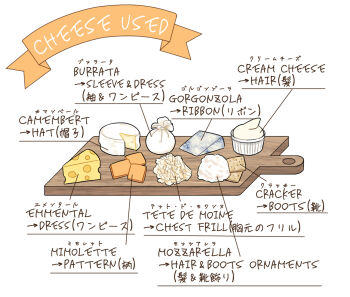 CHEESE USED
ブッラータ
BURRATA
→SLEEVE&DRESS
(袖&ワンピース)
クリームチーズ
CREAM CHEESE
→HAIR(髪)
ゴルゴンゾーラ
GORGONZOLA
→RIBBON(リボン)
カマンベール
CAMEMBERT
→HAT(帽子)
クラッカー
CRACKER
→BOOTS(靴)
エメンタール
EMMENTAL
→DRESS(ワンピース)
テット・ド・モワンヌ
TETE DE MOINE
→CHEST FRILL(胸元のフリル)
ミモレット
MIMOLETTE
→PATTERN(柄)
モッツァレラ
MOZZARELLA
→HAIR&BOOTS ORNAMENTS
(髪&靴飾り)